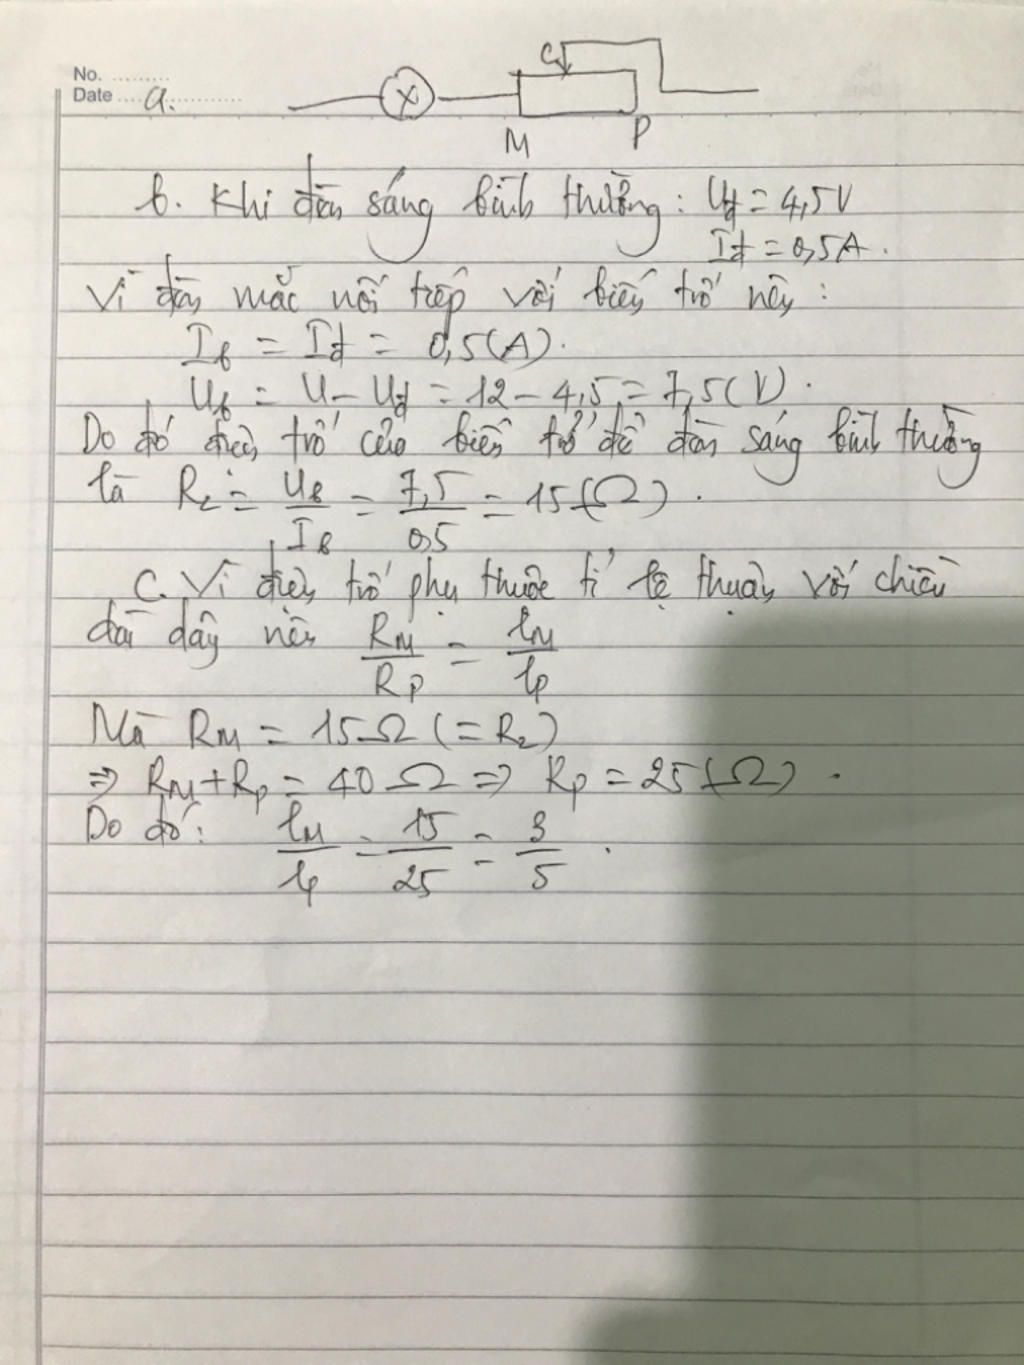 No. .........
Date .... a. ............
C
M P
b. Khi đèn sáng bình thường: Uđ = 4,5V
Iđ = 0,5A.
Vì đèn mắc nối tiếp với biến trở nên:
Ib = Iđ = 0,5(A).
Ub = U - Uđ = 12 - 4,5 = 7,5(V).
Do đó điện trở của biến trở để đèn sáng bình thường
là R2 = Ub/Ib = 7,5/0,5 = 15(Ω).
C. Vì điện trở phụ thuộc tỉ lệ thuận với chiều
dài dây nên RM/RP = lM/lP
Mà RM = 15Ω (= R2)
⇒ RM + RP = 40Ω ⇒ RP = 25(Ω).
Do đó: lM/lP = 15/25 = 3/5.